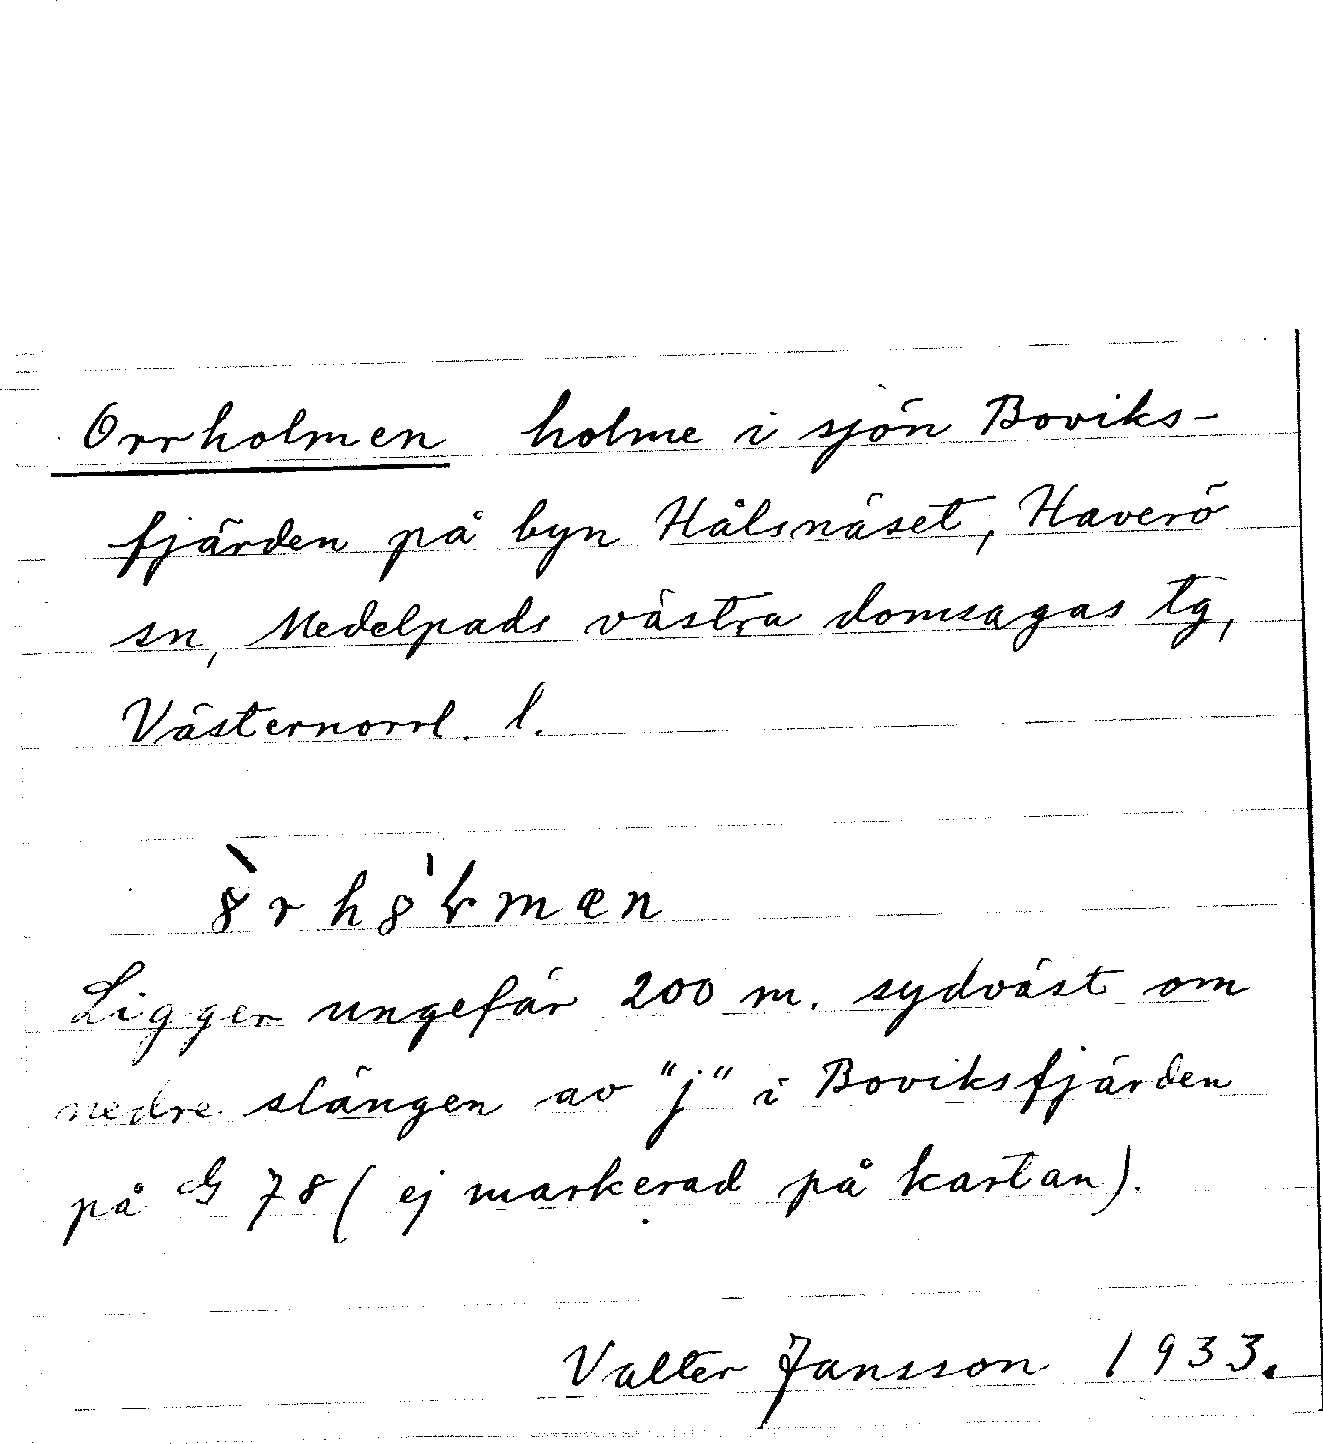 Orrholmen holme i sjön Boviks-
fjärden på byn Hålsnäset, Haverö
sn, Medelpads västra domsagas tg,
Västernorrl. l.
Ligger ungefär 200 m. sydväst om
nedre slängen av "j" i Boviksfjärden
på G 78 (ej markerad på kartan).
Valter Jansson 1933.